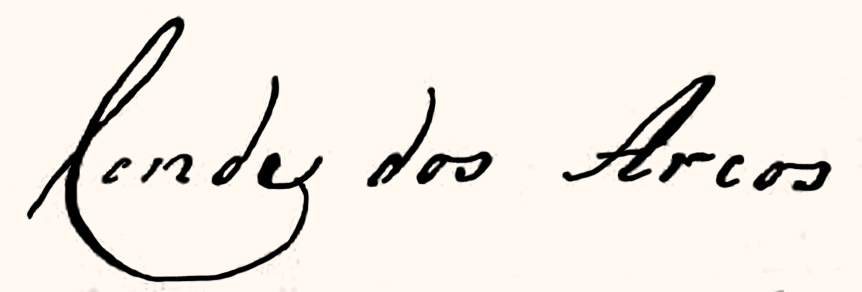 Conde dos Arcos